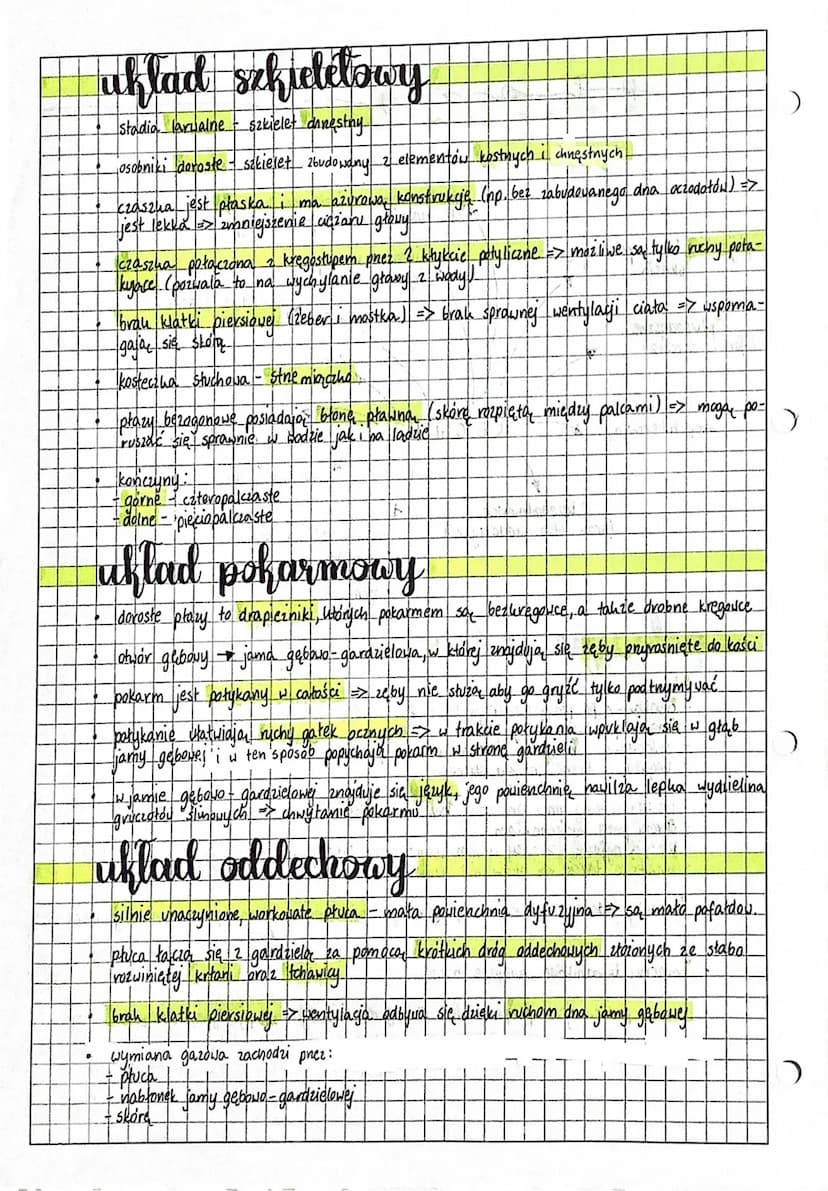 układ szkieletowy
• stadia larwalne - szkielet chrzęstny
• osobniki dorosłe - szkielet zbudowany z elementów kostnych i chrzęstnych
• czaszka jest płaska i ma ażurową konstrukcję (np. bez zabudowanego dna oczodołów) =>
jest lekka => zmniejszenie ciężaru głowy
• czaszka połączona z kręgosłupem przez 2 kłykcie potyliczne => możliwe są tylko ruchy pota-
kujące (pozwala to na wychylanie głowy z wody)
• brak klatki piersiowej (żeber i mostka) => brak sprawnej wentylacji ciała => wspoma-
gając się skórą
• kosteczka słuchowa - strzemiączko
• płazy bezogonowe posiadają błonę pławną (skórę rozpiętą między palcami) => mogą po-
ruszać się sprawnie w wodzie jak i na lądzie
• kończyny:
- górne - czteropalczaste
- dolne - pięciopalczaste
układ pokarmowy
• dorosłe płazy to drapieżniki, których pokarmem są bezkręgowce, a także drobne kręgowce
• otwór gębowy → jama gębowo-gardzielowa, w której znajdują się zęby przyrośnięte do kości
• pokarm jest połykany w całości => zęby nie służą aby go gryźć tylko podtrzymywać
• połykanie ułatwiają ruchy gałek ocznych => w trakcie połykania wpuklają się w głąb
jamy gębowej i w ten sposób popychają pokarm w stronę gardzieli
• w jamie gębowo-gardzielowej znajduje się język, jego powierzchnię nawilża lepka wydzielina
gruczołów ślinowych => chwytanie pokarmu
układ oddechowy
• silnie unaczynione, workowate płuca - mała powierzchnia dyfuzyjna => są mało pofałdow.
• płuca łączą się z gardzielą za pomocą krótkich dróg oddechowych złożonych ze słabo
rozwiniętej krtani oraz tchawicy
• brak klatki piersiowej => wentylacja odbywa się dzięki ruchom dna jamy gębowej
• wymiana gazowa zachodzi przez:
- płuca
- nabłonek jamy gębowo-gardzielowej
- skórę